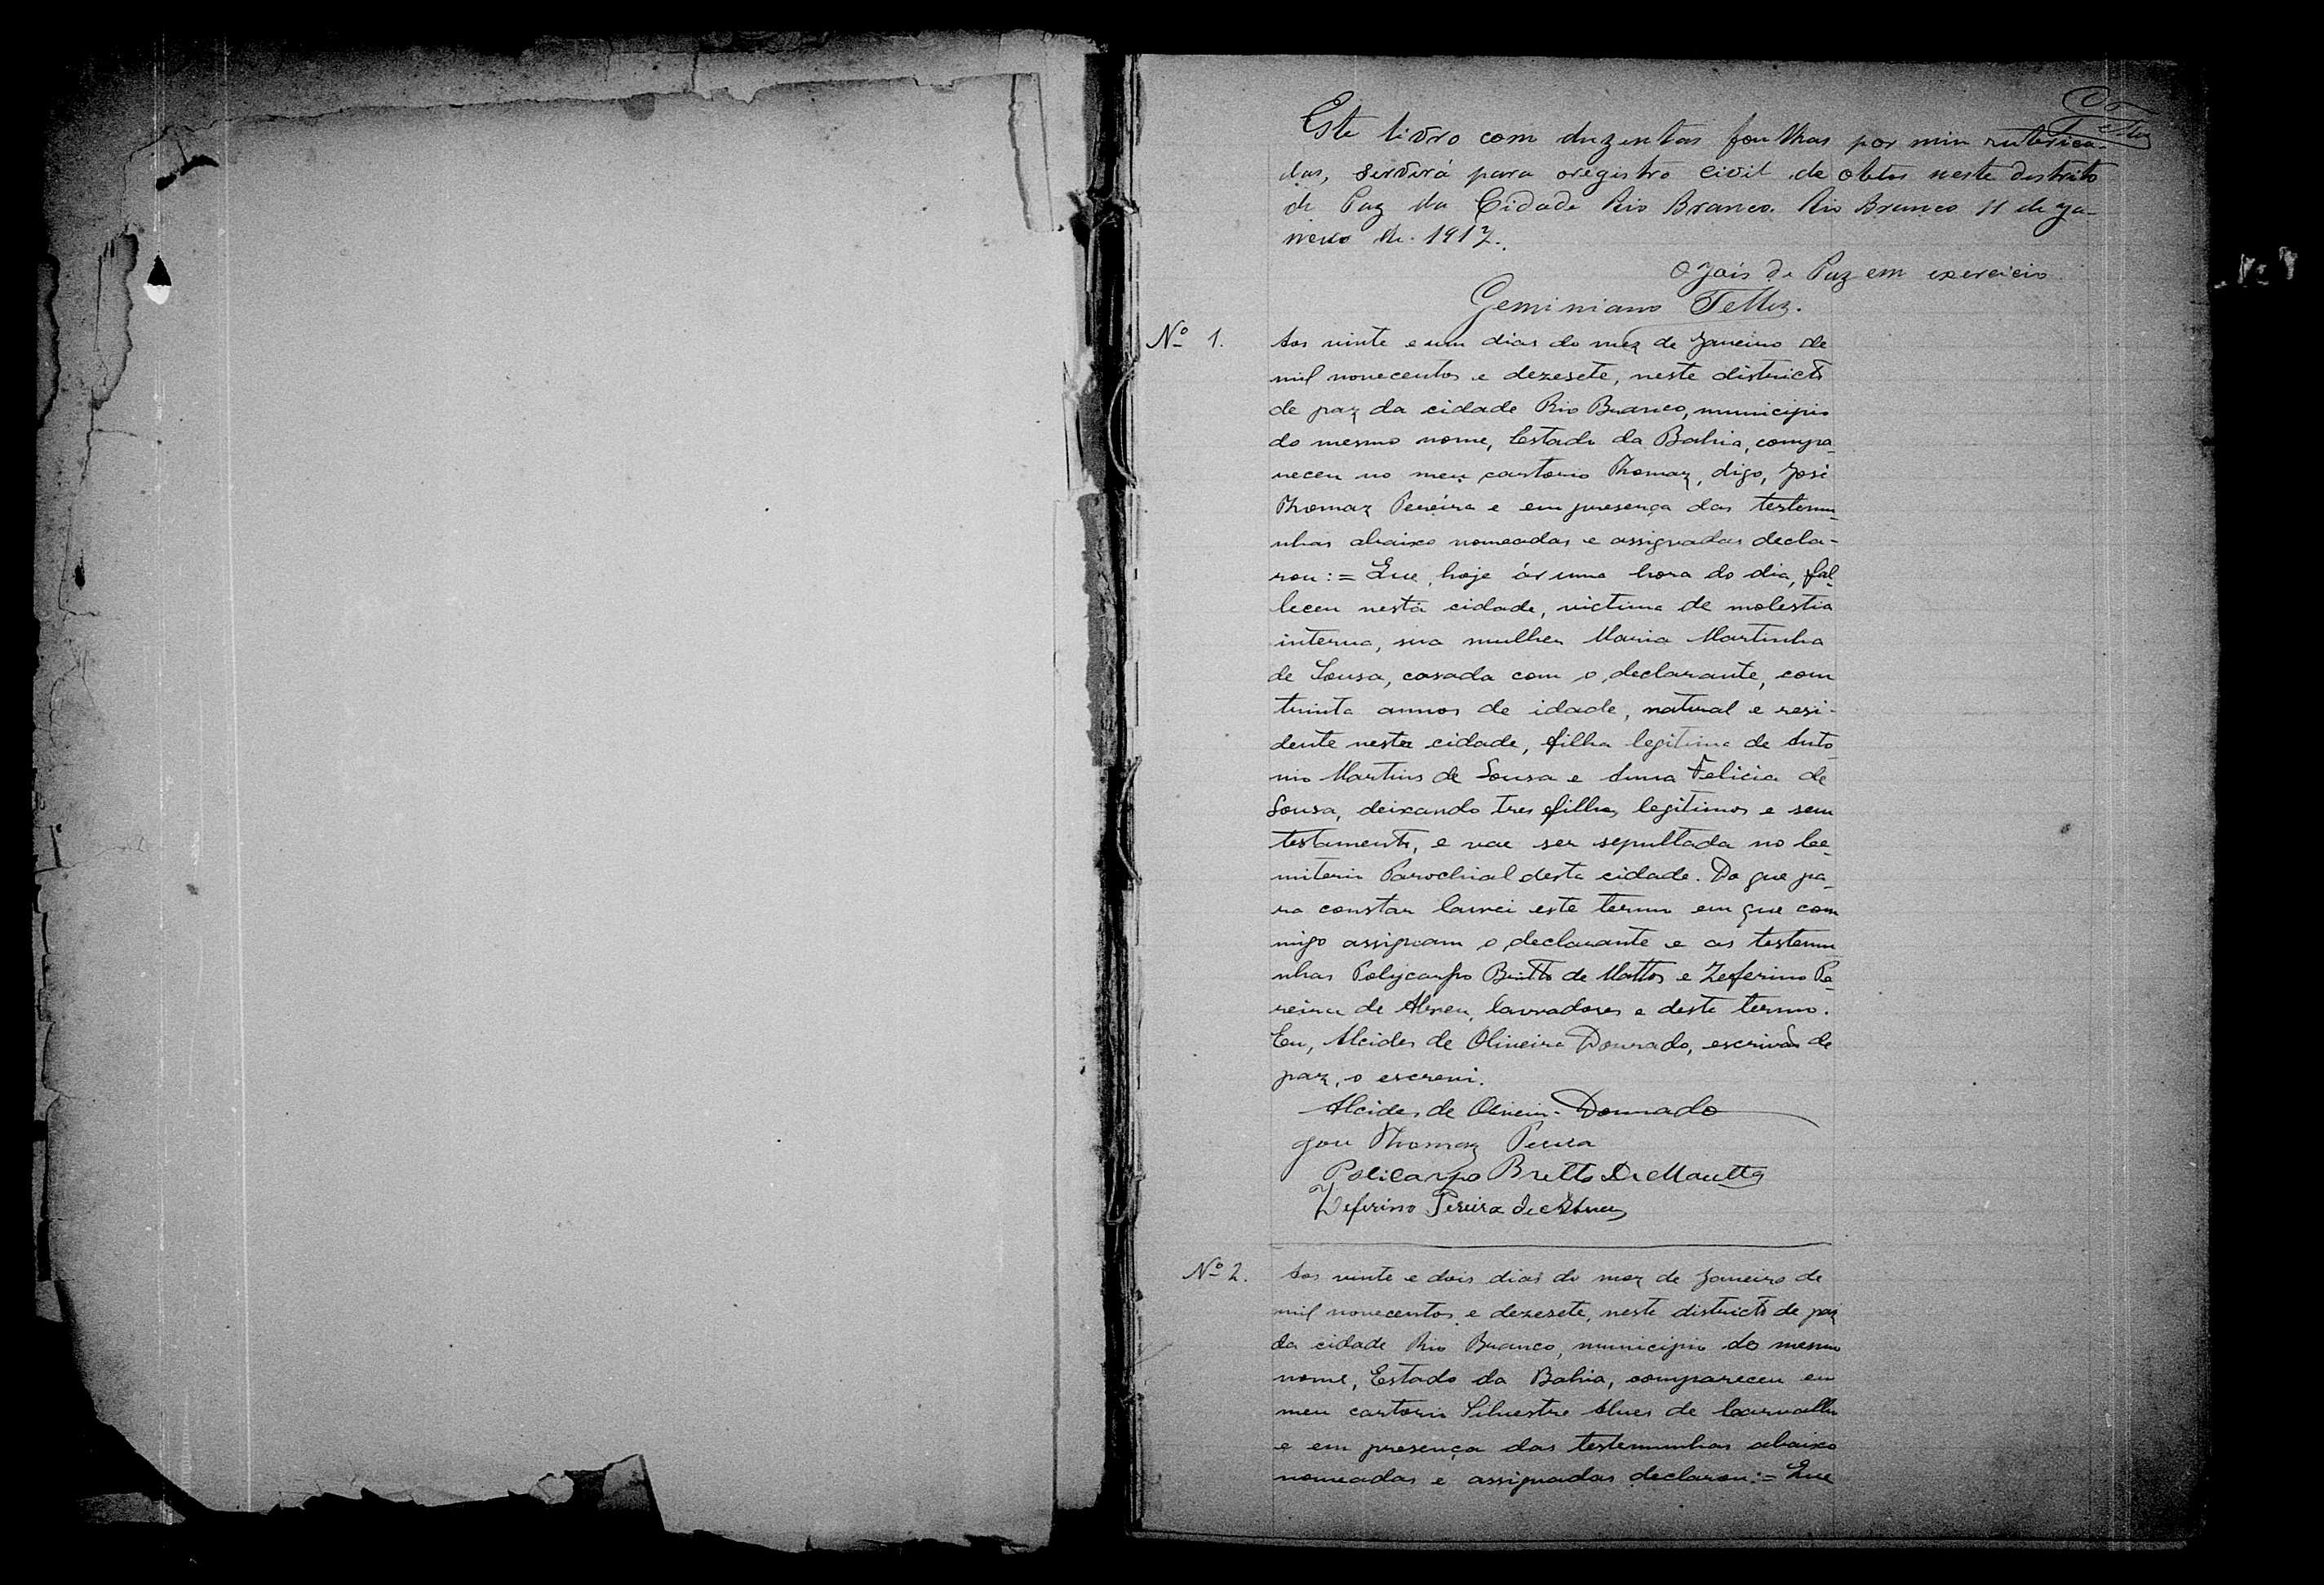 Este livro com duzentas foulhas por mim rubrica-
das, servirá para oregistro civil de obtos neste destrito
de Paz da Cidade Rio Branco. Rio Branco 11 de Ja-
neiro de 1917.
O Jois de Paz em exercicio
Geminiano Telles.
Nº 1.
Aos vinte e um dias do mez de Janeiro de
mil novecentos e dezesete, neste districto
de paz da cidade Rio Branco, municipio
do mesmo nome, Estado da Bahia, compa-
receu no meu cartorio Thomaz, digo, José
Thomaz Pereira e em presença das testemu-
nhas abaixo nomeadas e assignadas decla-
rou:= Que, hoje ás uma hora do dia, fal-
leceu nesta cidade, victima de molestia
interna, sua mulher Maria Martinha
de Sousa, casada com o declarante, com
trinta annos de idade, natural e resi-
dente nesta cidade, filha legitima de Anto
nio Martins de Sousa e Anna Felicia de
Sousa, deixando tres filhos legitimos e sem
testamento, e vae ser sepultada no Ce-
miterio Parochial desta cidade. Do que pa-
ra constar lavrei este termo em que com
migo assignam o declarante e as testemu
nhas Polycarpo Britto de Mattos e Zeferino Pe-
reira de Abreu, lavradores e deste termo.
Eu, Alcides de Oliveira Dourado, escrivão de
paz, o escrevi.
Alcides de Oliveira Dourado
José Thomaz Pereira
Policarpo Britto De Mautta
Zeferino Pereira de Abreu
Nº 2.
Aos vinte e dois dias do mez de Janeiro de
mil novecentos e dezesete, neste districto de paz
da cidade Rio Branco, municipio do mesmo
nome, Estado da Bahia, compareceu em
meu cartorio Silvestre Alves de Carvalho
e em presença das testemunhas abaixo
nomeadas e assignadas declarou:= Que